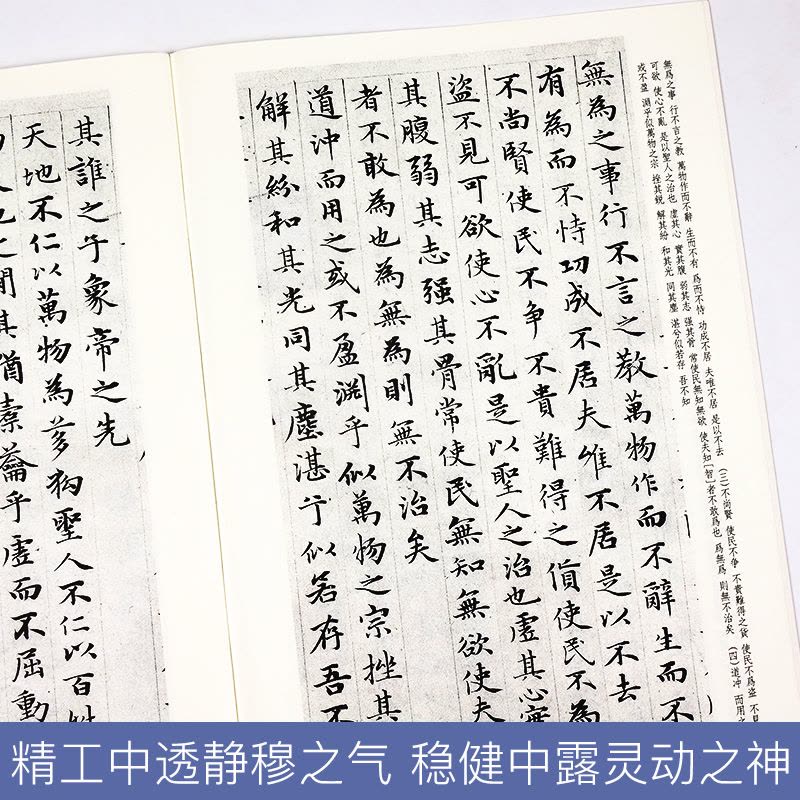 無爲之事 行不言之教 萬物作而不辭 生而不有 爲而不恃 功成不居 夫唯不居 是以不去 (三)不尚賢 使民不争 不貴難得之貨 使民不爲盗 不見
可欲 使心不亂 是以聖人之治也 虚其心 實其腹 弱其志 強其骨 常使民無知無欲 使夫知〔智〕者不敢爲也 爲無爲 則無不治矣 (四)道冲 而用
或不盈 淵乎似萬物之宗 挫其鋭 解其紛 和其光 同其塵 湛兮似若存 吾不知
無為之事行不言之教萬物作而不辭生而不
有為而不恃功成不居夫唯不居是以不去
不尚賢使民不争不貴難得之貨使民不為
盗不見可欲使心不亂是以聖人之治也虛其心實
其腹弱其志强其骨常使民無知無欲使夫
者不敢為也為無為則無不治矣
道沖而用之或不盈淵乎似萬物之宗挫其
解其紛和其光同其塵湛兮似若存吾不
其誰之子象帝之先
天地不仁以萬物為芻狗聖人不仁以百姓
之間其猶橐籥乎虛而不屈動
精工中透静穆之气 稳健中露灵动之神